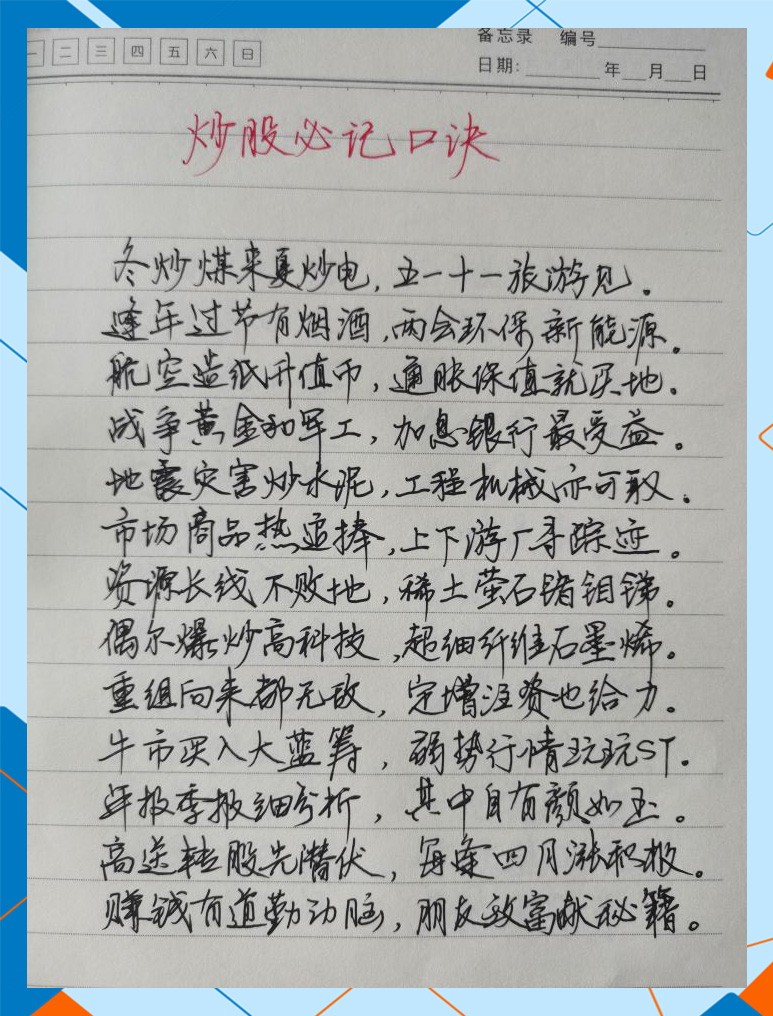 一 二 三 四 五 六 日
备忘录 编号
日期: 年 月 日
炒股必记口诀
冬炒煤来夏炒电,五一十一旅游见。
逢年过节有烟酒,两会环保新能源。
航空造纸升值币,通胀保值就买地。
战争黄金和军工,加息银行最受益。
地震灾害炒水泥,工程机械亦可取。
市场商品热追捧,上下游厂寻踪迹。
资源长线不败地,稀土萤石锗钼锑。
偶尔爆炒高科技,超细纤维石墨烯。
重组向来都无敌,定增注资也给力。
牛市买入大蓝筹,弱势行情玩玩ST.
年报季报细分析,其中自有颜如玉。
高送转股先潜伏,每逢四月涨积极。
赚钱有道勤动脑,朋友致富献秘籍。